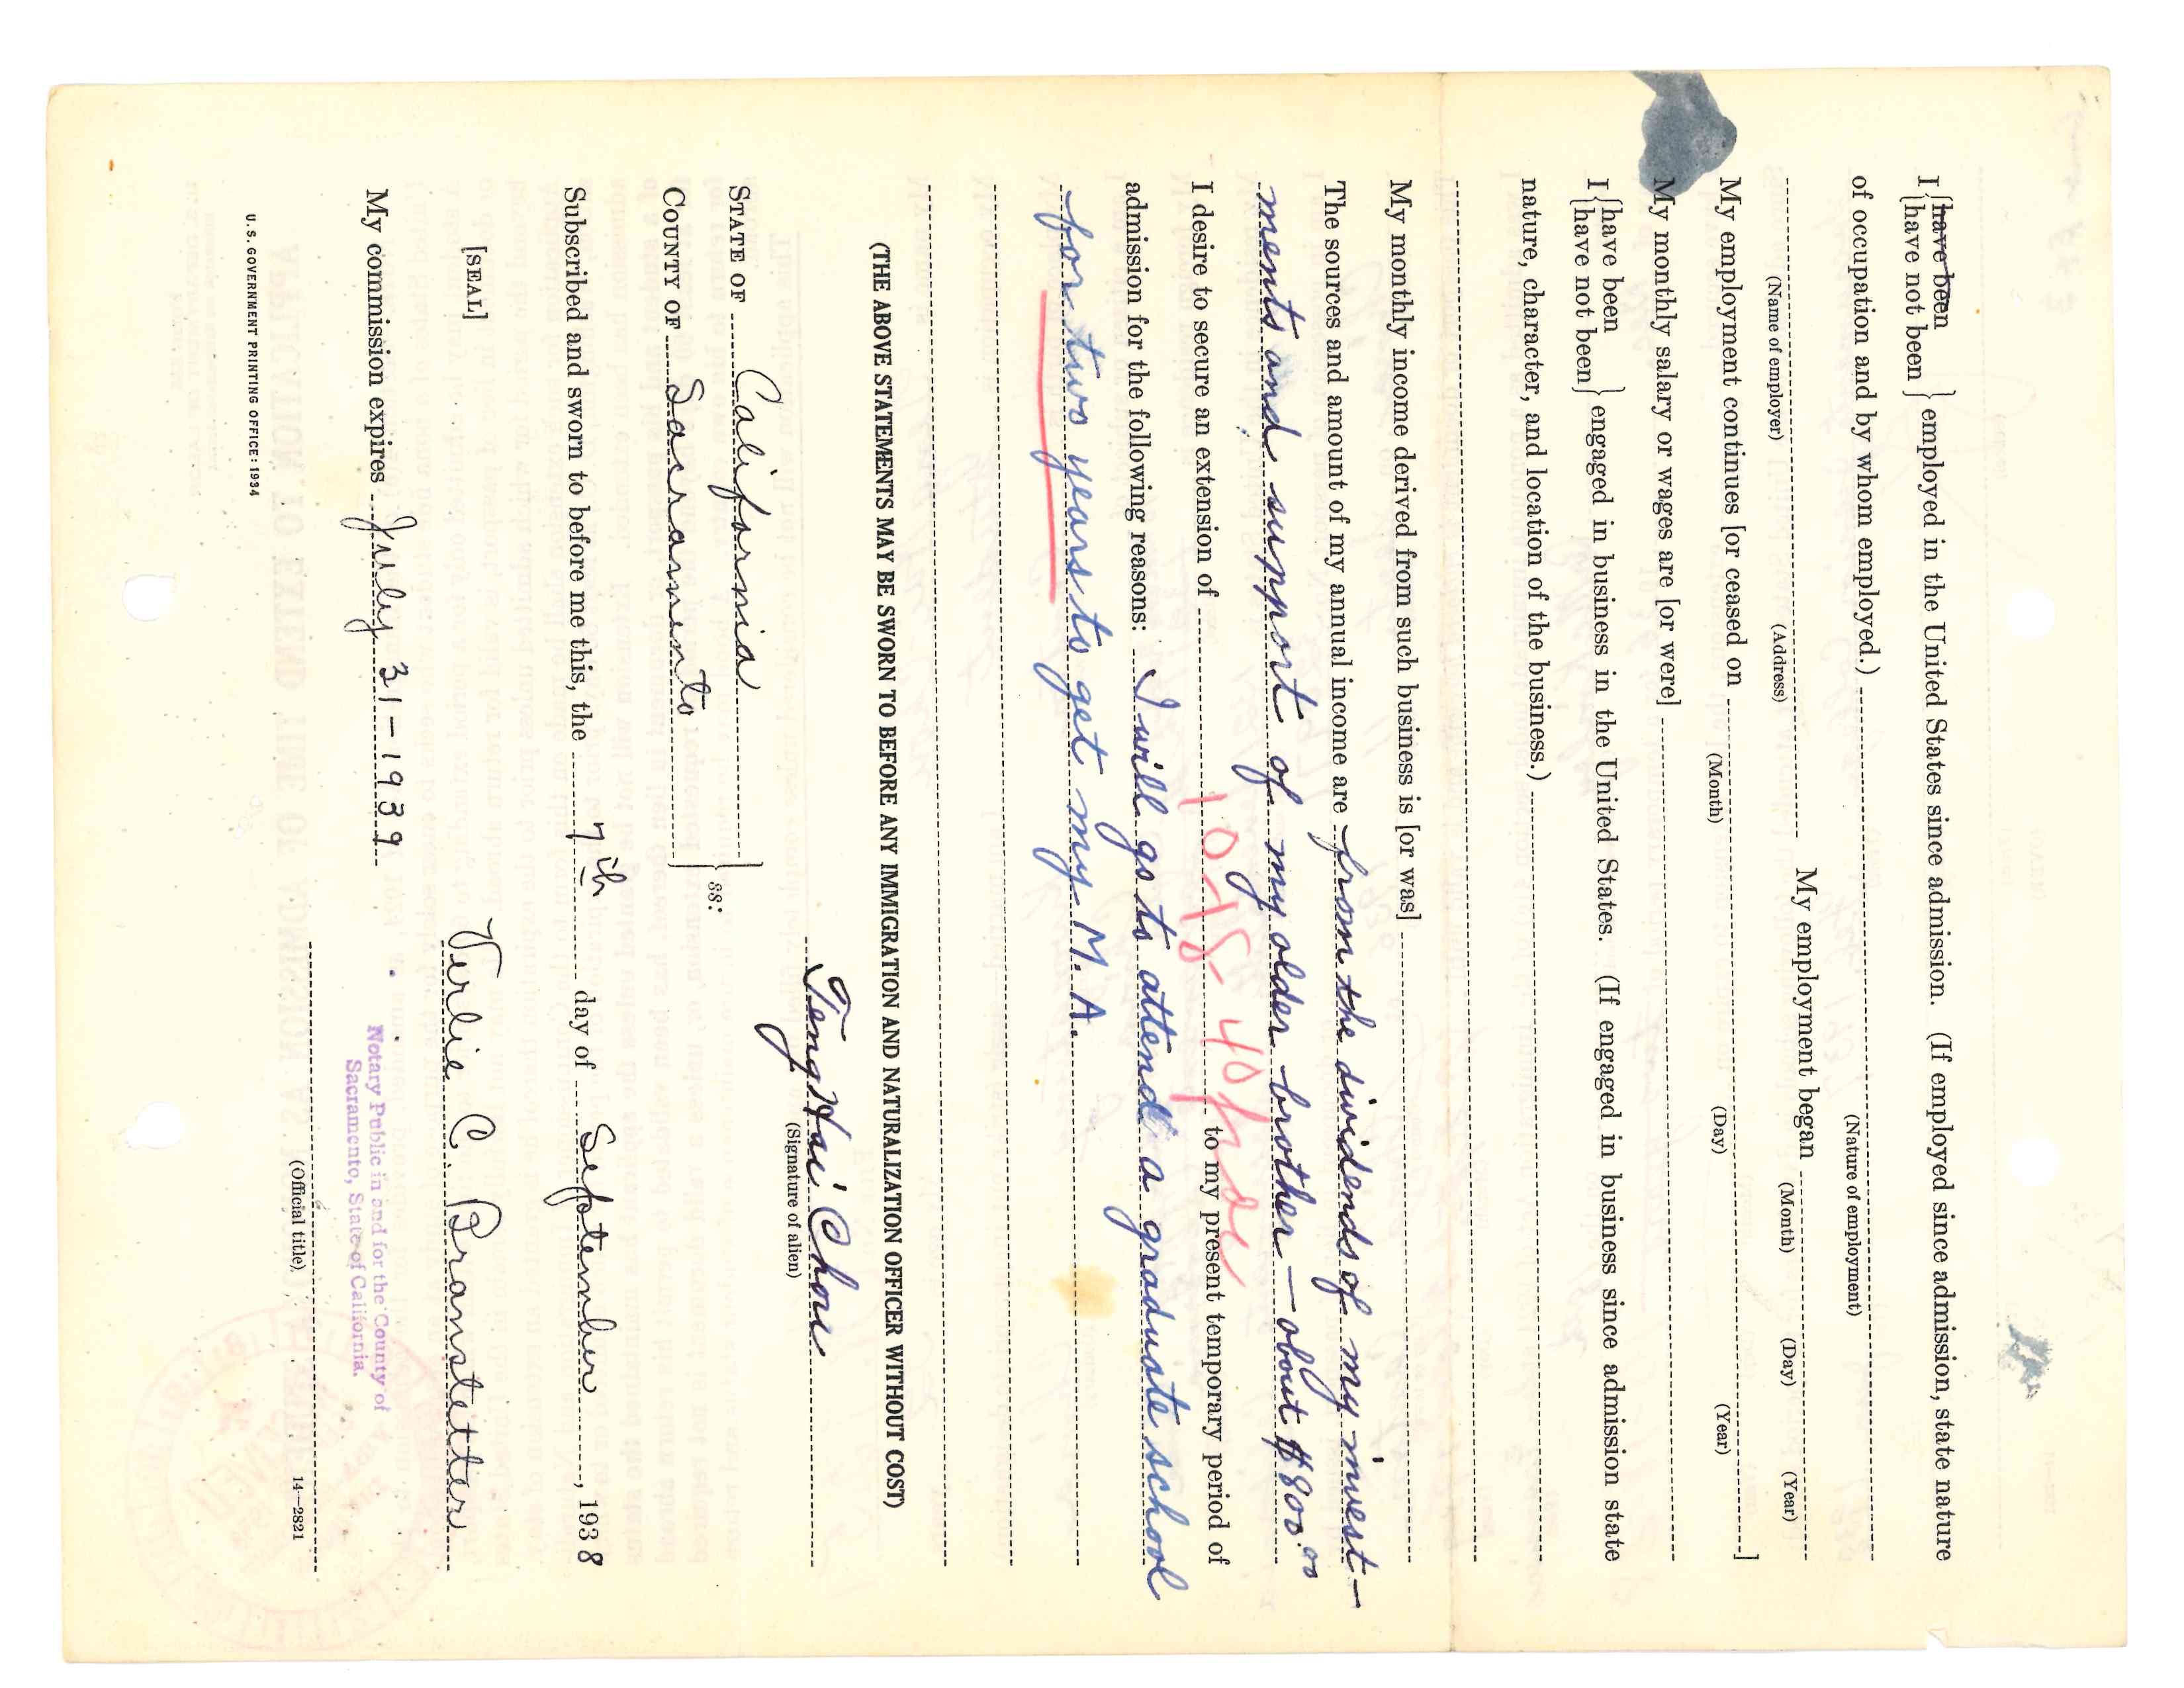 I {have been / have not been} employed in the United States since admission. (If employed since admission, state nature
of occupation and by whom employed.)
(Nature of employment)
My employment began
(Name of employer) (Address) (Month) (Day) (Year)
My employment continues [or ceased on ]
(Month) (Day) (Year)
My monthly salary or wages are [or were]
I {have been / have not been} engaged in business in the United States. (If engaged in business since admission state
nature, character, and location of the business.)
My monthly income derived from such business is [or was]
The sources and amount of my annual income are from the dividends of my invest-
ments and support of my older brother — about $800.00
10-18-40
I desire to secure an extension of to my present temporary period of
admission for the following reasons: I will go to attend a graduate school
for two years to get my M. A.
(THE ABOVE STATEMENTS MAY BE SWORN TO BEFORE ANY IMMIGRATION AND NATURALIZATION OFFICER WITHOUT COST)
Teng Hai Chou
(Signature of alien)
STATE OF California
ss:
COUNTY OF Sacramento
Subscribed and sworn to before me this, the 7th day of September, 1938
[SEAL]
Verlie C. Branstetter
My commission expires July 31-1939
Notary Public in and for the County of
Sacramento, State of California.
(Official title) 14—2821
U.S. GOVERNMENT PRINTING OFFICE: 1934